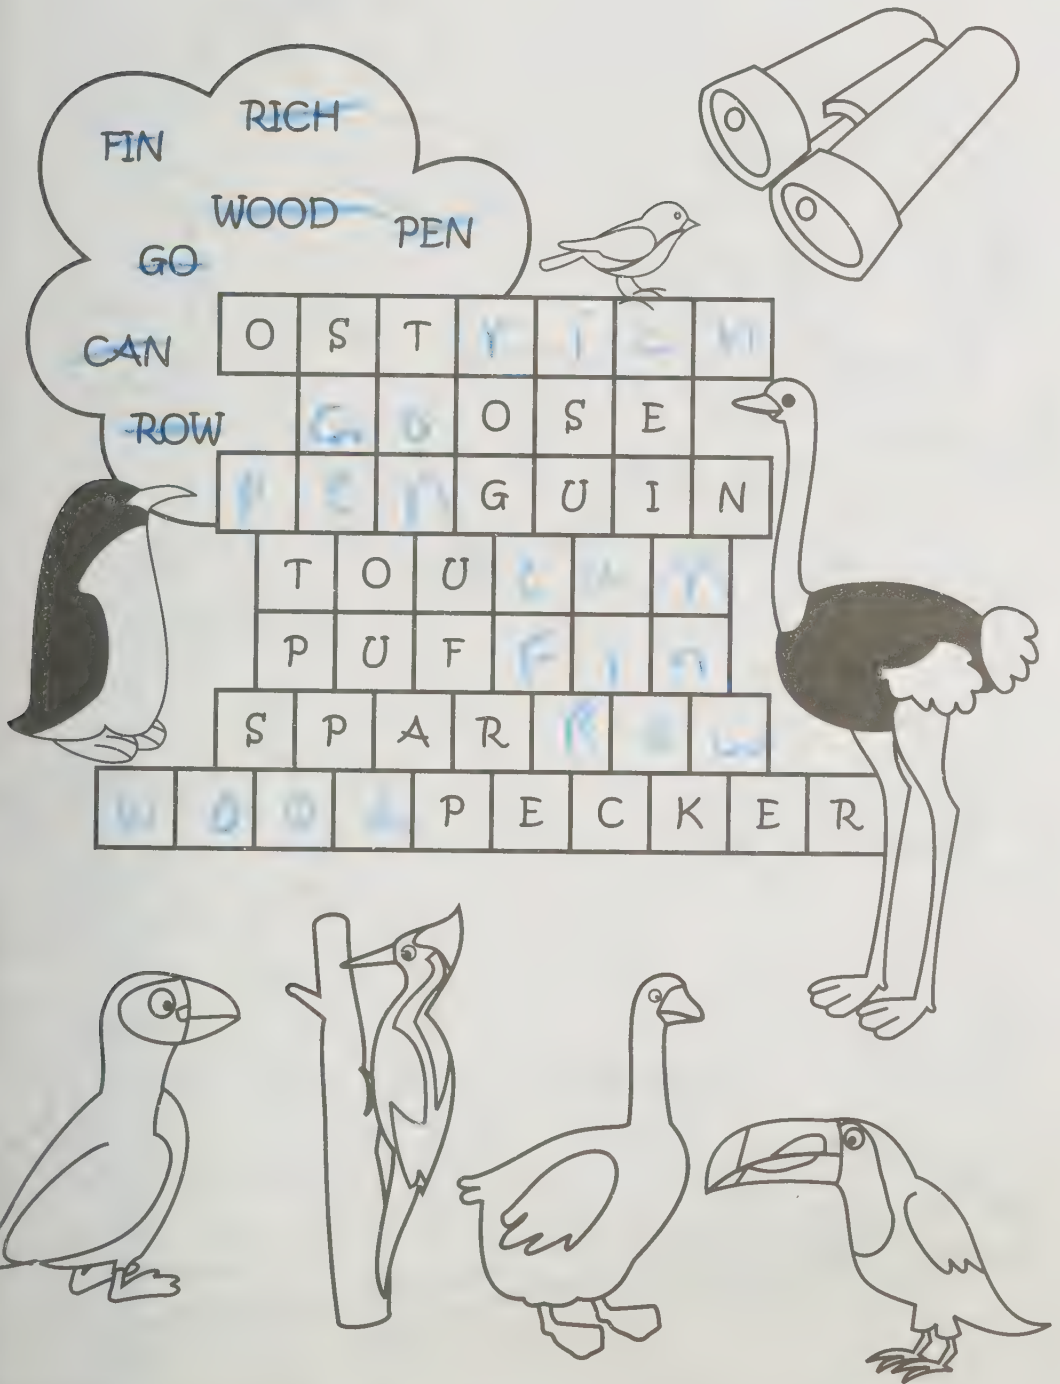 RICH
FIN
WOOD
PEN
GO
CAN
ROW
O S T r i c h
G o O S E
P e n G U I N
T O U c a n
P U F F i n
S P A R R o w
w o o d P E C K E R